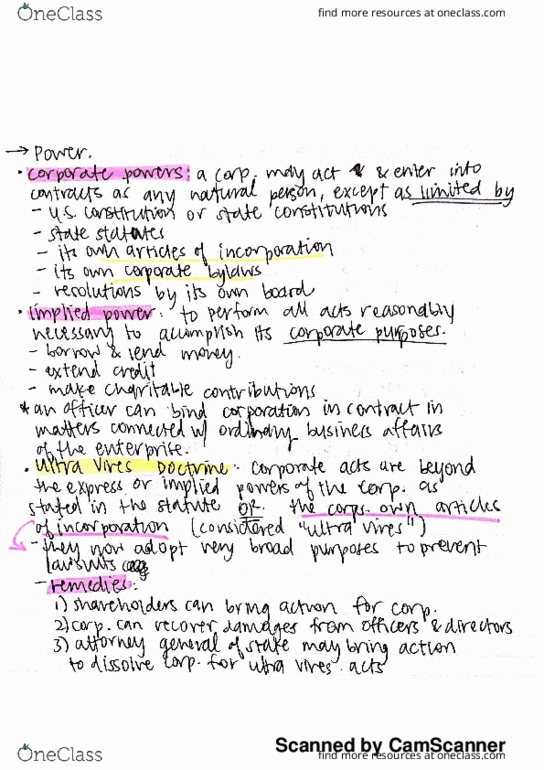 OneClass
find more resources at oneclass.com
→ Power.
• corporate powers: a corp. may act & enter into
contracts as any natural person, except as limited by
- U.S. constitution or state constitutions
- state statutes
- its own articles of incorporation
- its own corporate bylaws
- resolutions by its own board
• implied power: to perform all acts reasonably
necessary to accomplish its corporate purposes.
- borrow & lend money.
- extend credit
- make charitable contributions
* an officer can bind corporation in contract in
matters connected w/ ordinary business affairs
of the enterprise.
• Ultra Vires Doctrine: corporate acts are beyond
the express or implied powers of the corp. as
stated in the statute OR the corps. own articles
of incorporation (considered "ultra vires")
- they now adopt very broad purposes to prevent
lawsuits
- remedies:
1) shareholders can bring action for corp.
2) corp. can recover damages from officers & directors
3) attorney general of state may bring action
to dissolve corp. for ultra vires acts
Scanned by CamScanner
OneClass
find more resources at oneclass.com